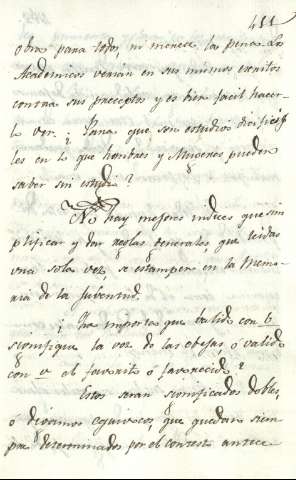 411
obra para todos, ni merece la pena. Los
Academicos verán en sus mismos escritos
contra sus preceptos y es bien facil hacer-
lo ver. ¿Para que son estudios dificiles
en lo que hombres y Mugeres pueden
saber sin estudio?
No hay mejores indices que sim
plificar y dar reglas generales, que leidas
una sola vez, se estampen en la memo
ria de la Juventud.
¿Que importa que balido con b
signifique la voz de las obejas, ó valido
con v el favorito ó favorecido?
Estos seran significados dobles,
ó diremos equivocos, que quedan siem
pre determinados por el contesto antece